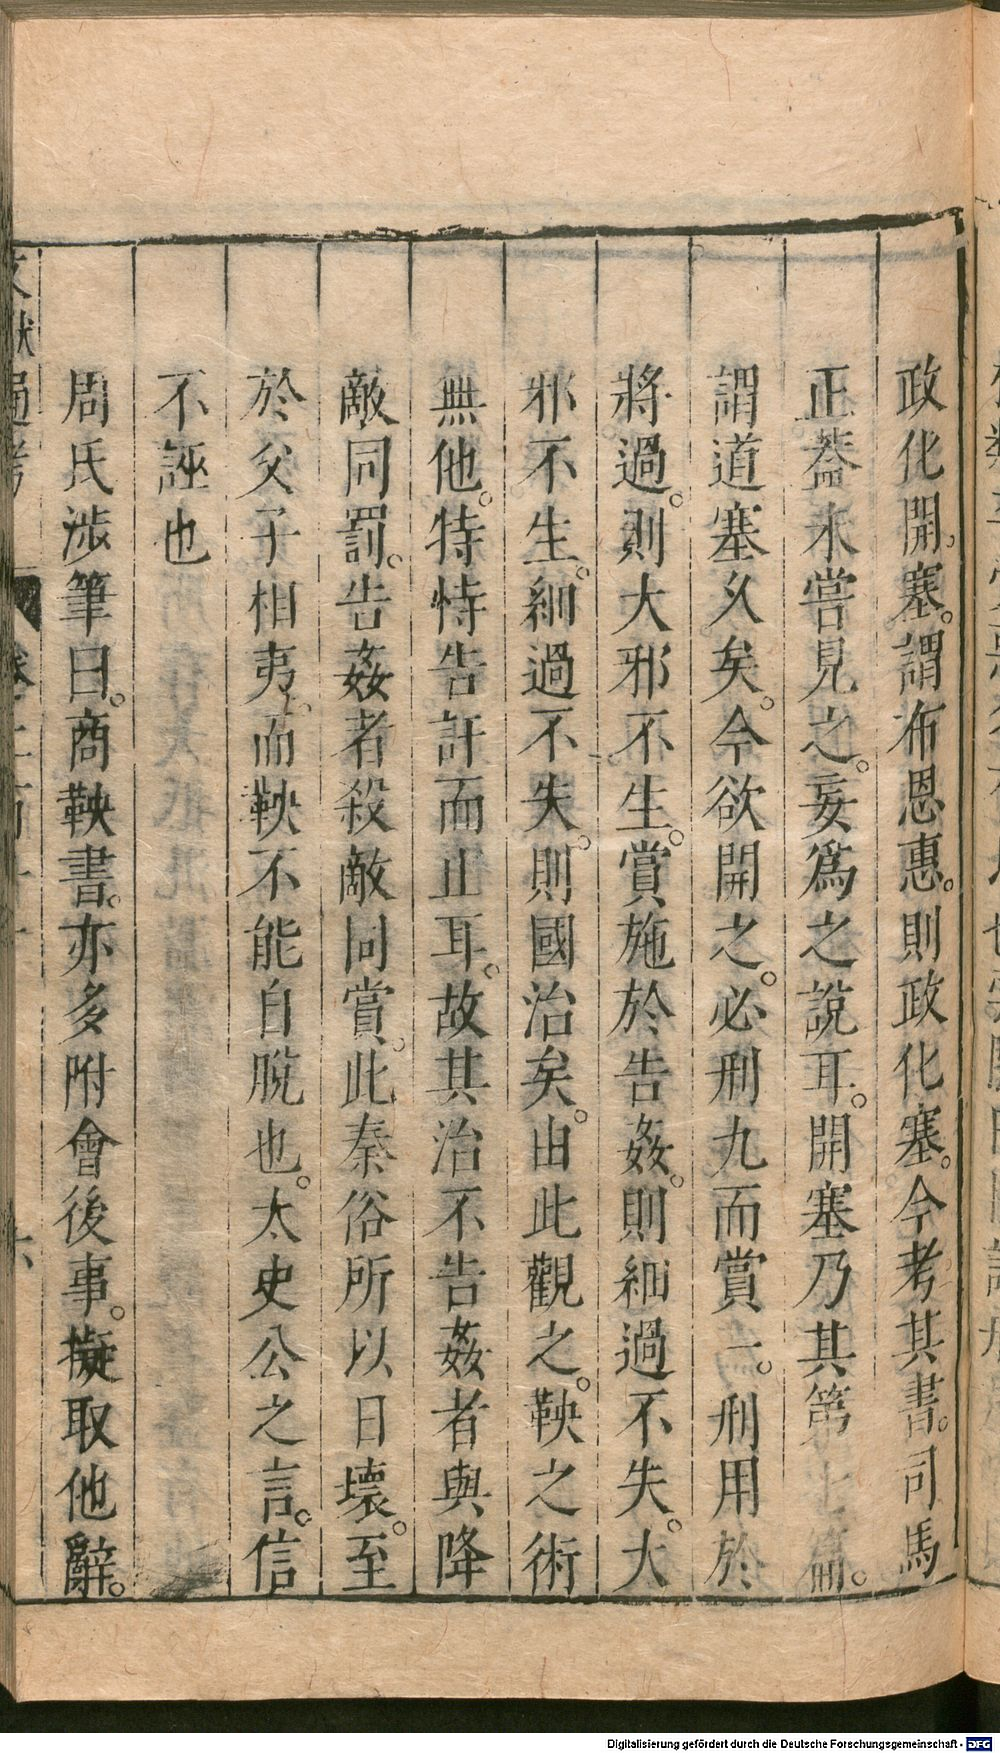 政化開塞。謂布恩惠。則政化塞。今考其書。司馬
正蓋未嘗見之。妄爲之說耳。開塞乃其第七篇。
謂道塞久矣。今欲開之。必刑九而賞一。刑用於
將過。則大邪不生。賞施於告姦。則細過不失。大
邪不生。細過不失。則國治矣。由此觀之。鞅之術
無他。特恃告訐而止耳。故其治不告姦者與降
敵同罰。告姦者殺敵同賞。此秦俗所以日壞。至
於父子相夷。而鞅不能自脫也。太史公之言。信
不誣也
周氏涉筆曰。商鞅書。亦多附會後事。擬取他辭。
文獻通考
六
Digitalisierung gefördert durch die Deutsche Forschungsgemeinschaft - DFG